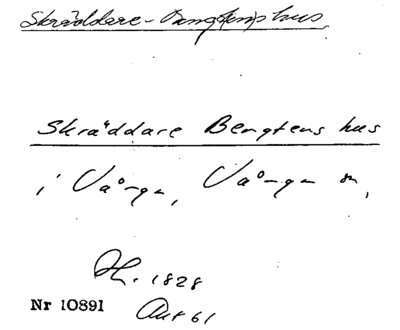 Skräddare-Bengtens hus
Skräddare Bengtens hus
i Vånga, Vånga sn,
H. 1828
Nr 10891